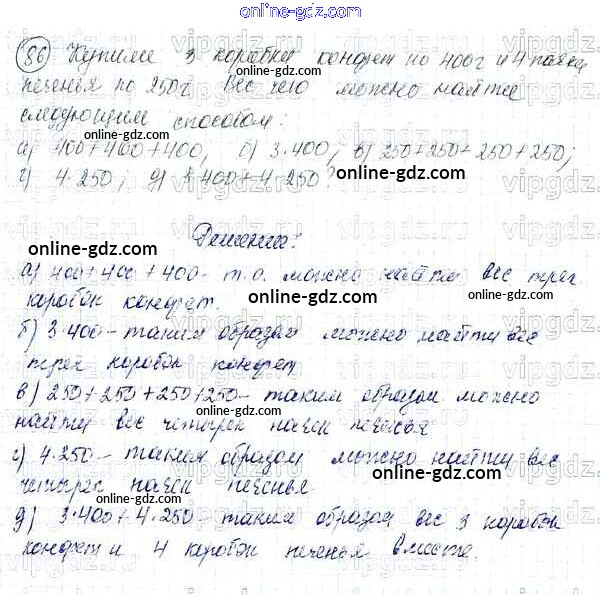 online-gdz.com
86 Купили 3 коробки конфет по 400г и 4 пачки
печенья по 250г. Вес чего можно найти
следующим способом:
а) 400+400+400; б) 3·400; в) 250+250+250+250;
г) 4·250; д) 3·400+4·250?
Решение:
а) 400+400+400- т.о. можно найти вес трех
коробок конфет.
б) 3·400- таким образом можно найти вес
трех коробок конфет
в) 250+250+250+250- таким образом можно
найти вес четырех пачек печенья
г) 4·250- таким образом можно найти вес
четырех пачек печенья
д) 3·400+4·250- таким образом вес 3 коробок
конфет и 4 коробок печенья вместе.
online-gdz.com